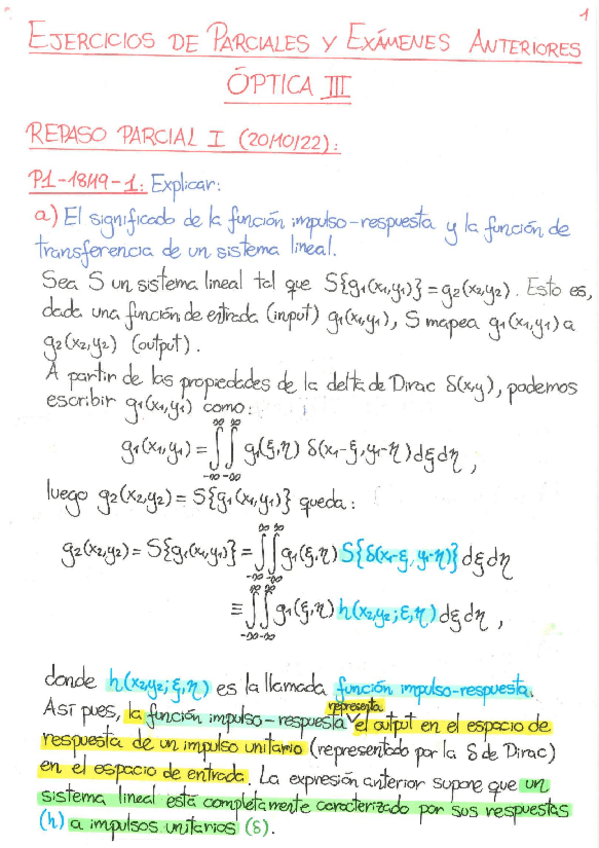 1
EJERCICIOS DE PARCIALES Y EXÁMENES ANTERIORES
ÓPTICA III
REPASO PARCIAL I (20/10/22):
P1-18/19-1: Explicar:
a) El significado de la función impulso-respuesta y la función de
transferencia de un sistema lineal.
Sea S un sistema lineal tal que S{g₁(x₁,y₁)} = g₂(x₂,y₂). Esto es,
dada una función de entrada (input) g₁(x₁,y₁), S mapea g₁(x₁,y₁) a
g₂(x₂,y₂) (output).
A partir de las propiedades de la delta de Dirac δ(x,y), podemos
escribir g₁(x₁,y₁) como:
g₁(x₁,y₁) = ∫_{-∞}^{∞} ∫_{-∞}^{∞} g₁(ξ,η) δ(x₁-ξ, y₁-η) dξ dη ,
luego g₂(x₂,y₂) = S{g₁(x₁,y₁)} queda:
g₂(x₂,y₂) = S{g₁(x₁,y₁)} = ∫_{-∞}^{∞} ∫_{-∞}^{∞} g₁(ξ,η) S{δ(x₁-ξ, y₁-η)} dξ dη
≡ ∫_{-∞}^{∞} ∫_{-∞}^{∞} g₁(ξ,η) h(x₂,y₂; ξ,η) dξ dη ,
donde h(x₂,y₂; ξ,η) es la llamada función impulso-respuesta.
Así pues, la función impulso-respuesta representa el output en el espacio de
respuesta de un impulso unitario (representado por la δ de Dirac)
en el espacio de entrada. La expresión anterior supone que un
sistema lineal está completamente caracterizado por sus respuestas
(h) a impulsos unitarios (δ).